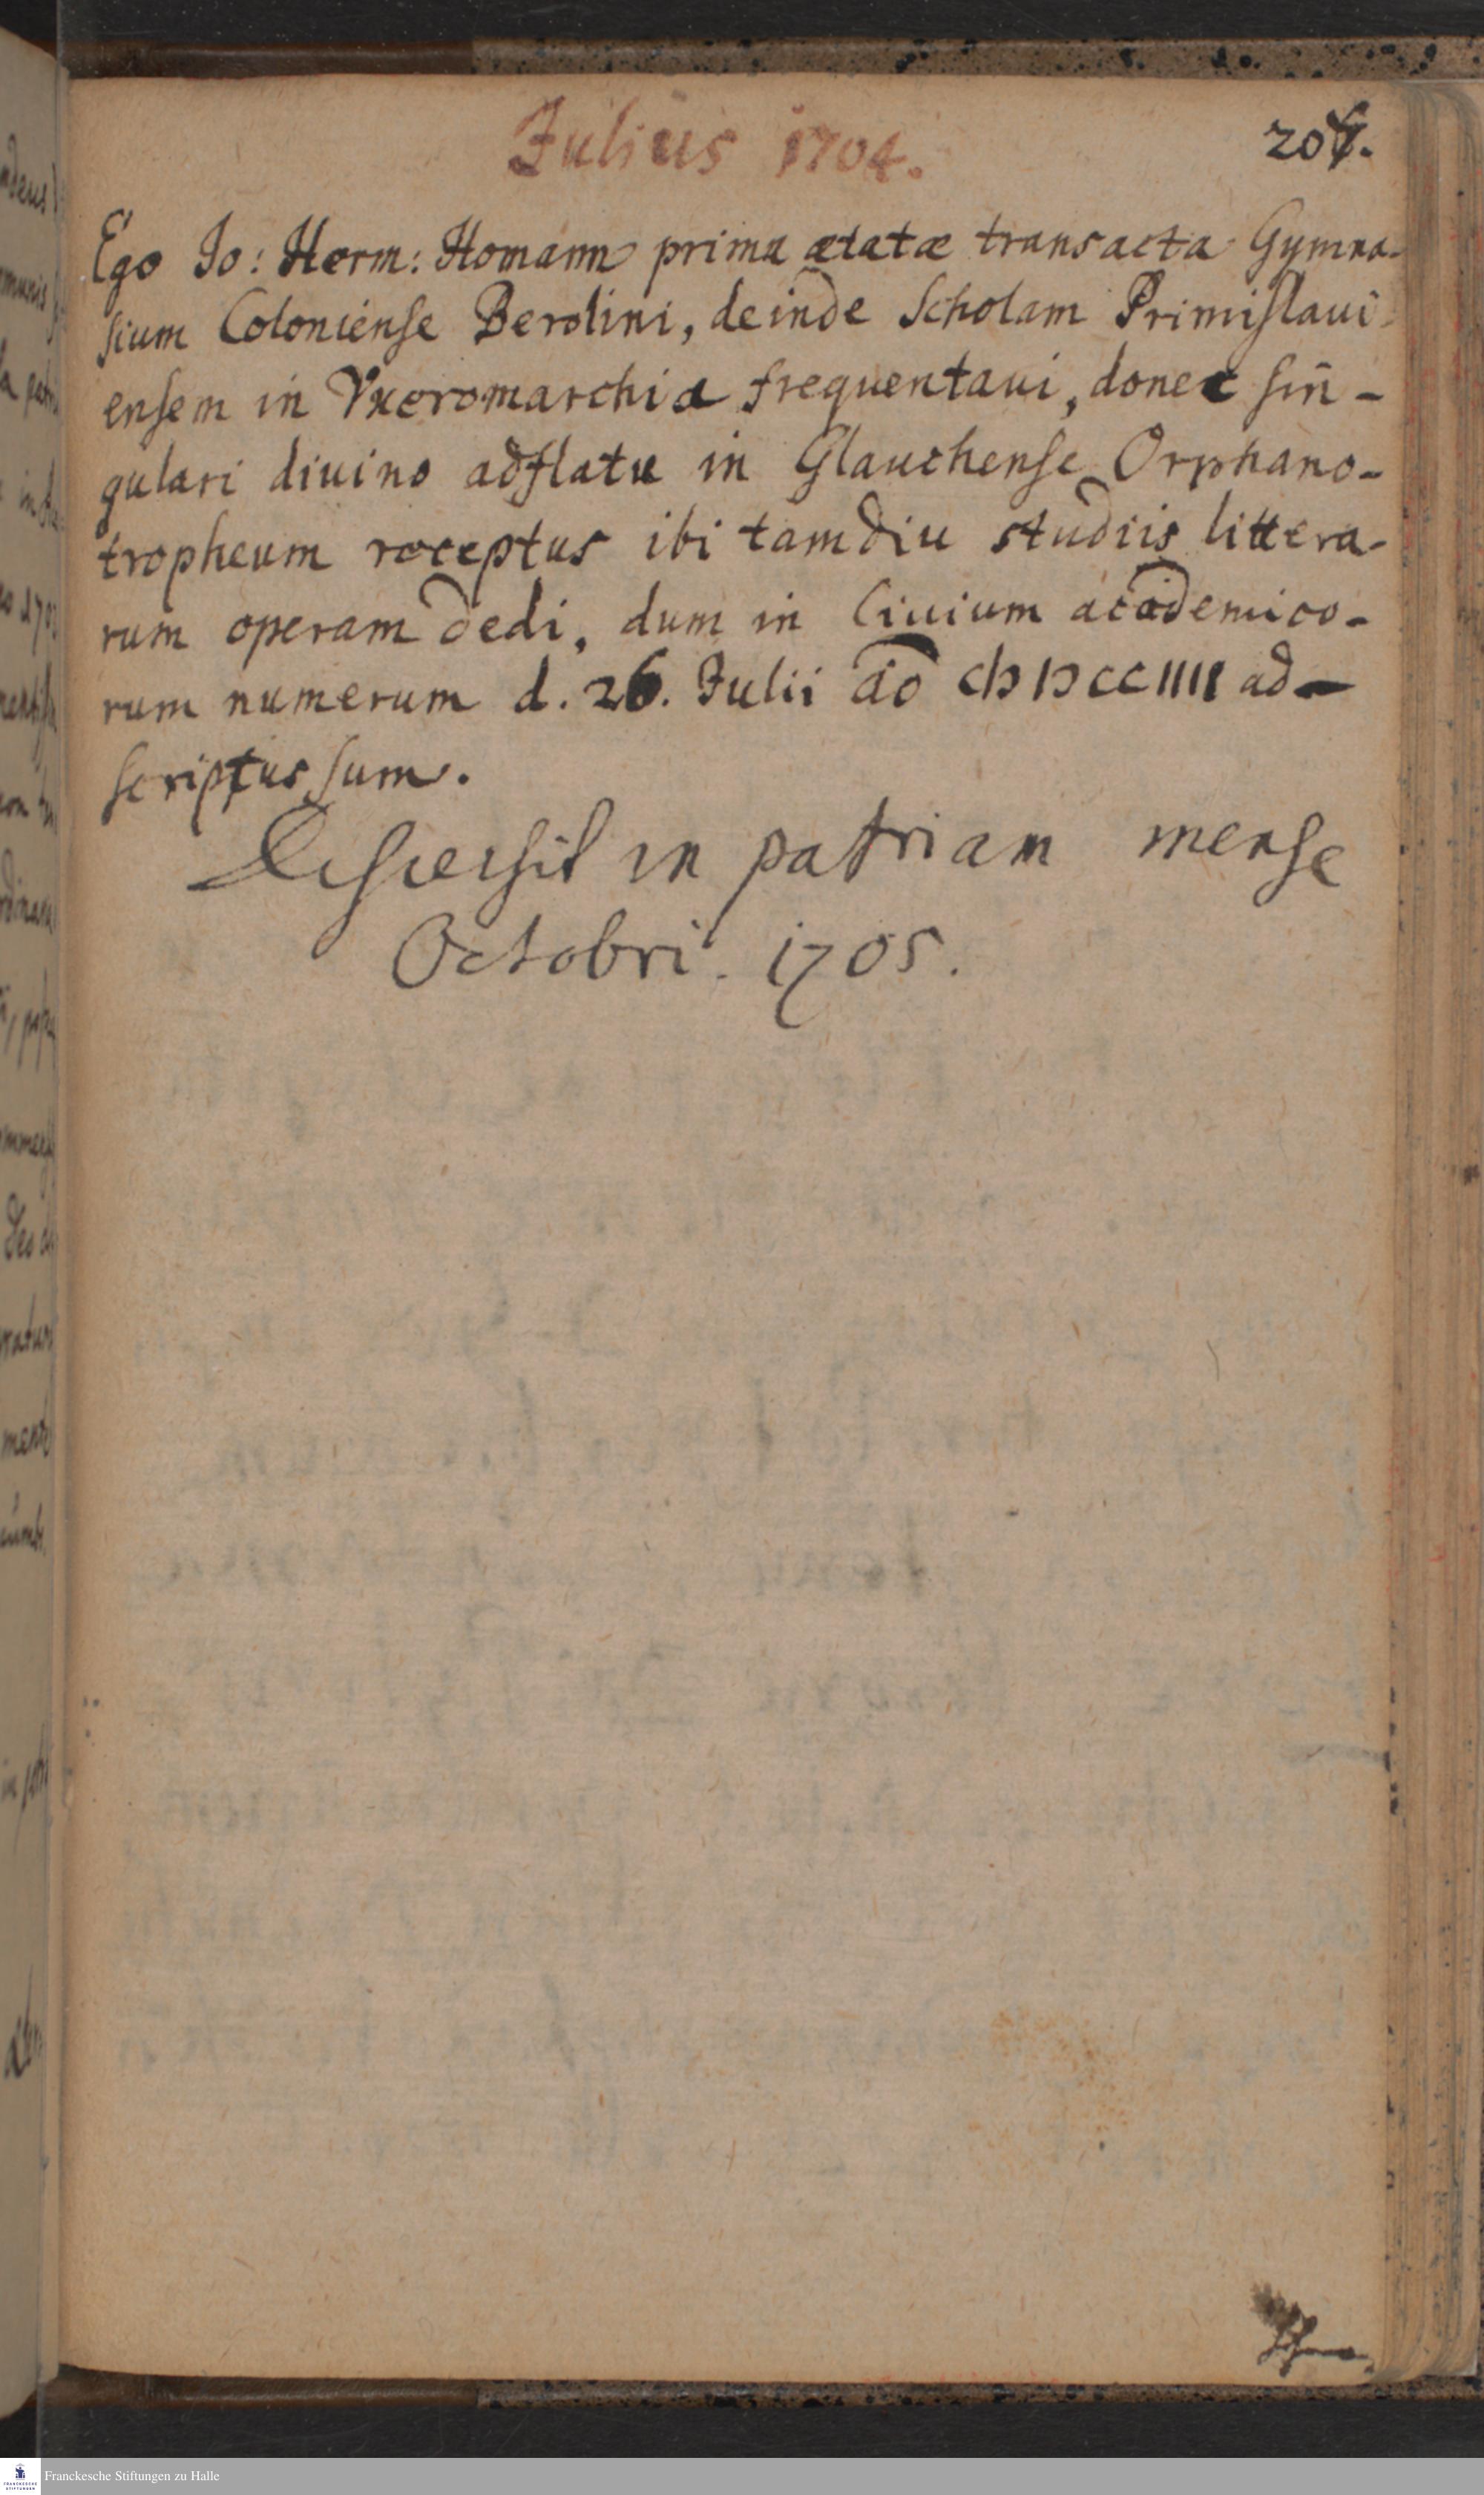 Julius 1704.
207.
Ego Jo: Herm: Homann prima ætatæ transacta Gymna-
sium Coloniense Berolini, deinde Scholam Primislaui-
ensem in Vxeromarchia frequentaui, donec sin̄-
gulari diuino adflatu in Glauchense Orphano-
tropheum receptus ibi tamdiu studiis littera-
rum operam dedi, dum in Ciuium academico-
rum numerum d. 26. Julii ao cIɔ Iɔ CCIIII ad-
scriptus sum.
Discessit in patriam mense
Octobri. 1705.
Franckesche Stiftungen zu Halle